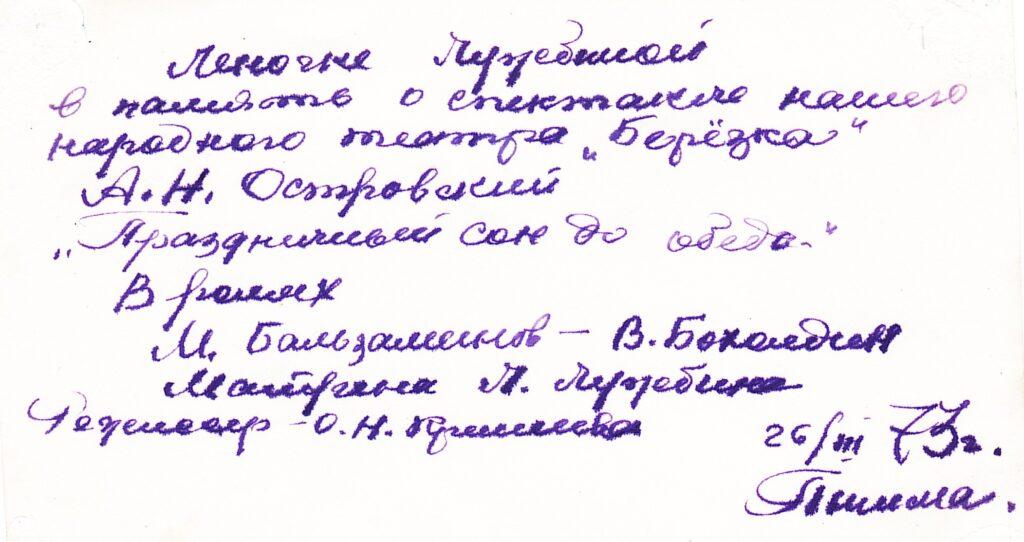 Леночке Лужбиной
в память о спектакле нашего
народного театра „Берёзка“
А.Н. Островский
„Праздничный сон до обеда.“
В ролях
М. Бальзаминов – В. Бохолдин
Матрёна Л. Лужбина
Режиссер – О.Н.
26/III 73г.